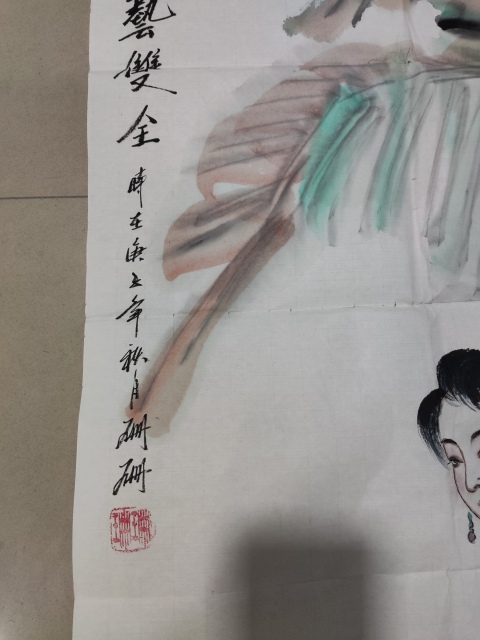 藝雙全
時在庚午年秋月珊珊